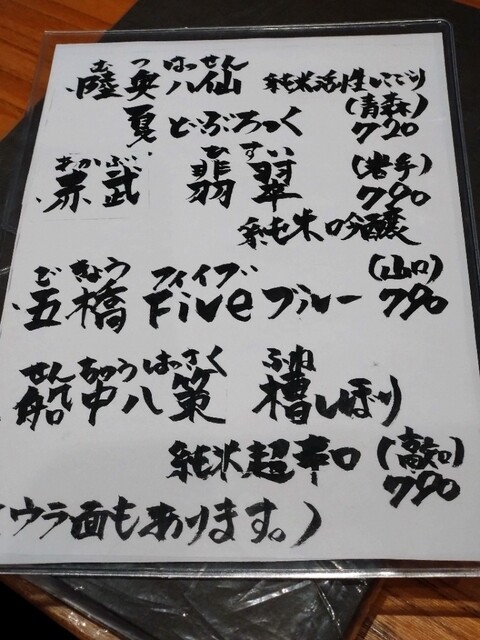 むつはっせん
・陸奥八仙 純米活性にごり
(青森)
夏どぶろっく 720
あかぶ ひすい
・赤武 翡翠 (岩手)
790
純米吟醸
ごきょう ファイブ (山口)
・五橋 Five ブルー 790
せんちゅうはっさく ふね
船中八策 槽しぼり
純米超辛口 (高知)
790
ウラ面もあります。)